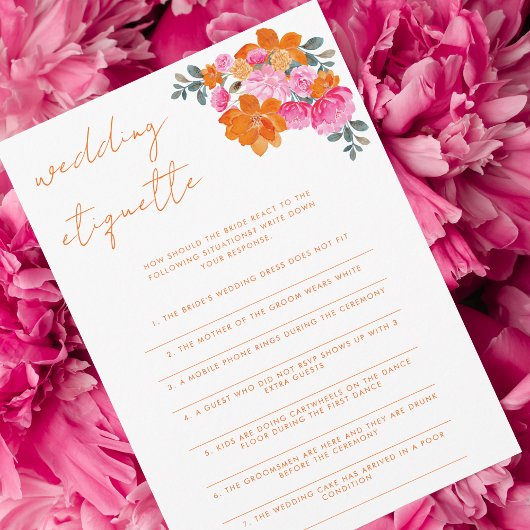 wedding
etiquette
HOW SHOULD THE BRIDE REACT TO THE
FOLLOWING SITUATIONS? WRITE DOWN
YOUR RESPONSE.
1. THE BRIDE'S WEDDING DRESS DOES NOT FIT
2. THE MOTHER OF THE GROOM WEARS WHITE
3. A MOBILE PHONE RINGS DURING THE CEREMONY
4. A GUEST WHO DID NOT RSVP SHOWS UP WITH 3
EXTRA GUESTS
5. KIDS ARE DOING CARTWHEELS ON THE DANCE
FLOOR DURING THE FIRST DANCE
6. THE GROOMSMEN ARE HERE AND THEY ARE DRUNK
BEFORE THE CEREMONY
7. THE WEDDING CAKE HAS ARRIVED IN A POOR
CONDITION